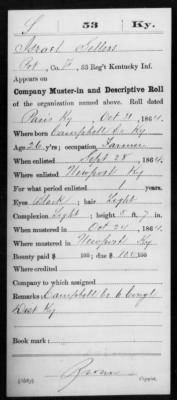 S 53 Ky.
Israel Sellers
Pvt, Co. B, 53 Reg't Kentucky Inf.
Appears on
Company Muster-in and Descriptive Roll
of the organization named above. Roll dated
Paris Ky Oct 31, 1864.
Where born Campbell Co Ky
Age 26 y'rs; occupation Farmer
When enlisted Sept 28, 1864.
Where enlisted Newport Ky
For what period enlisted 1 years.
Eyes Black; hair Light
Complexion Light; height 5 ft. 7 in.
When mustered in Oct 24, 1864.
Where mustered in Newport Ky
Bounty paid $ 100; due $ 100
Where credited
Company to which assigned
Remarks: Campbell Co 6 Congl
Dist Ky
Book mark:
Brown
Copyist.